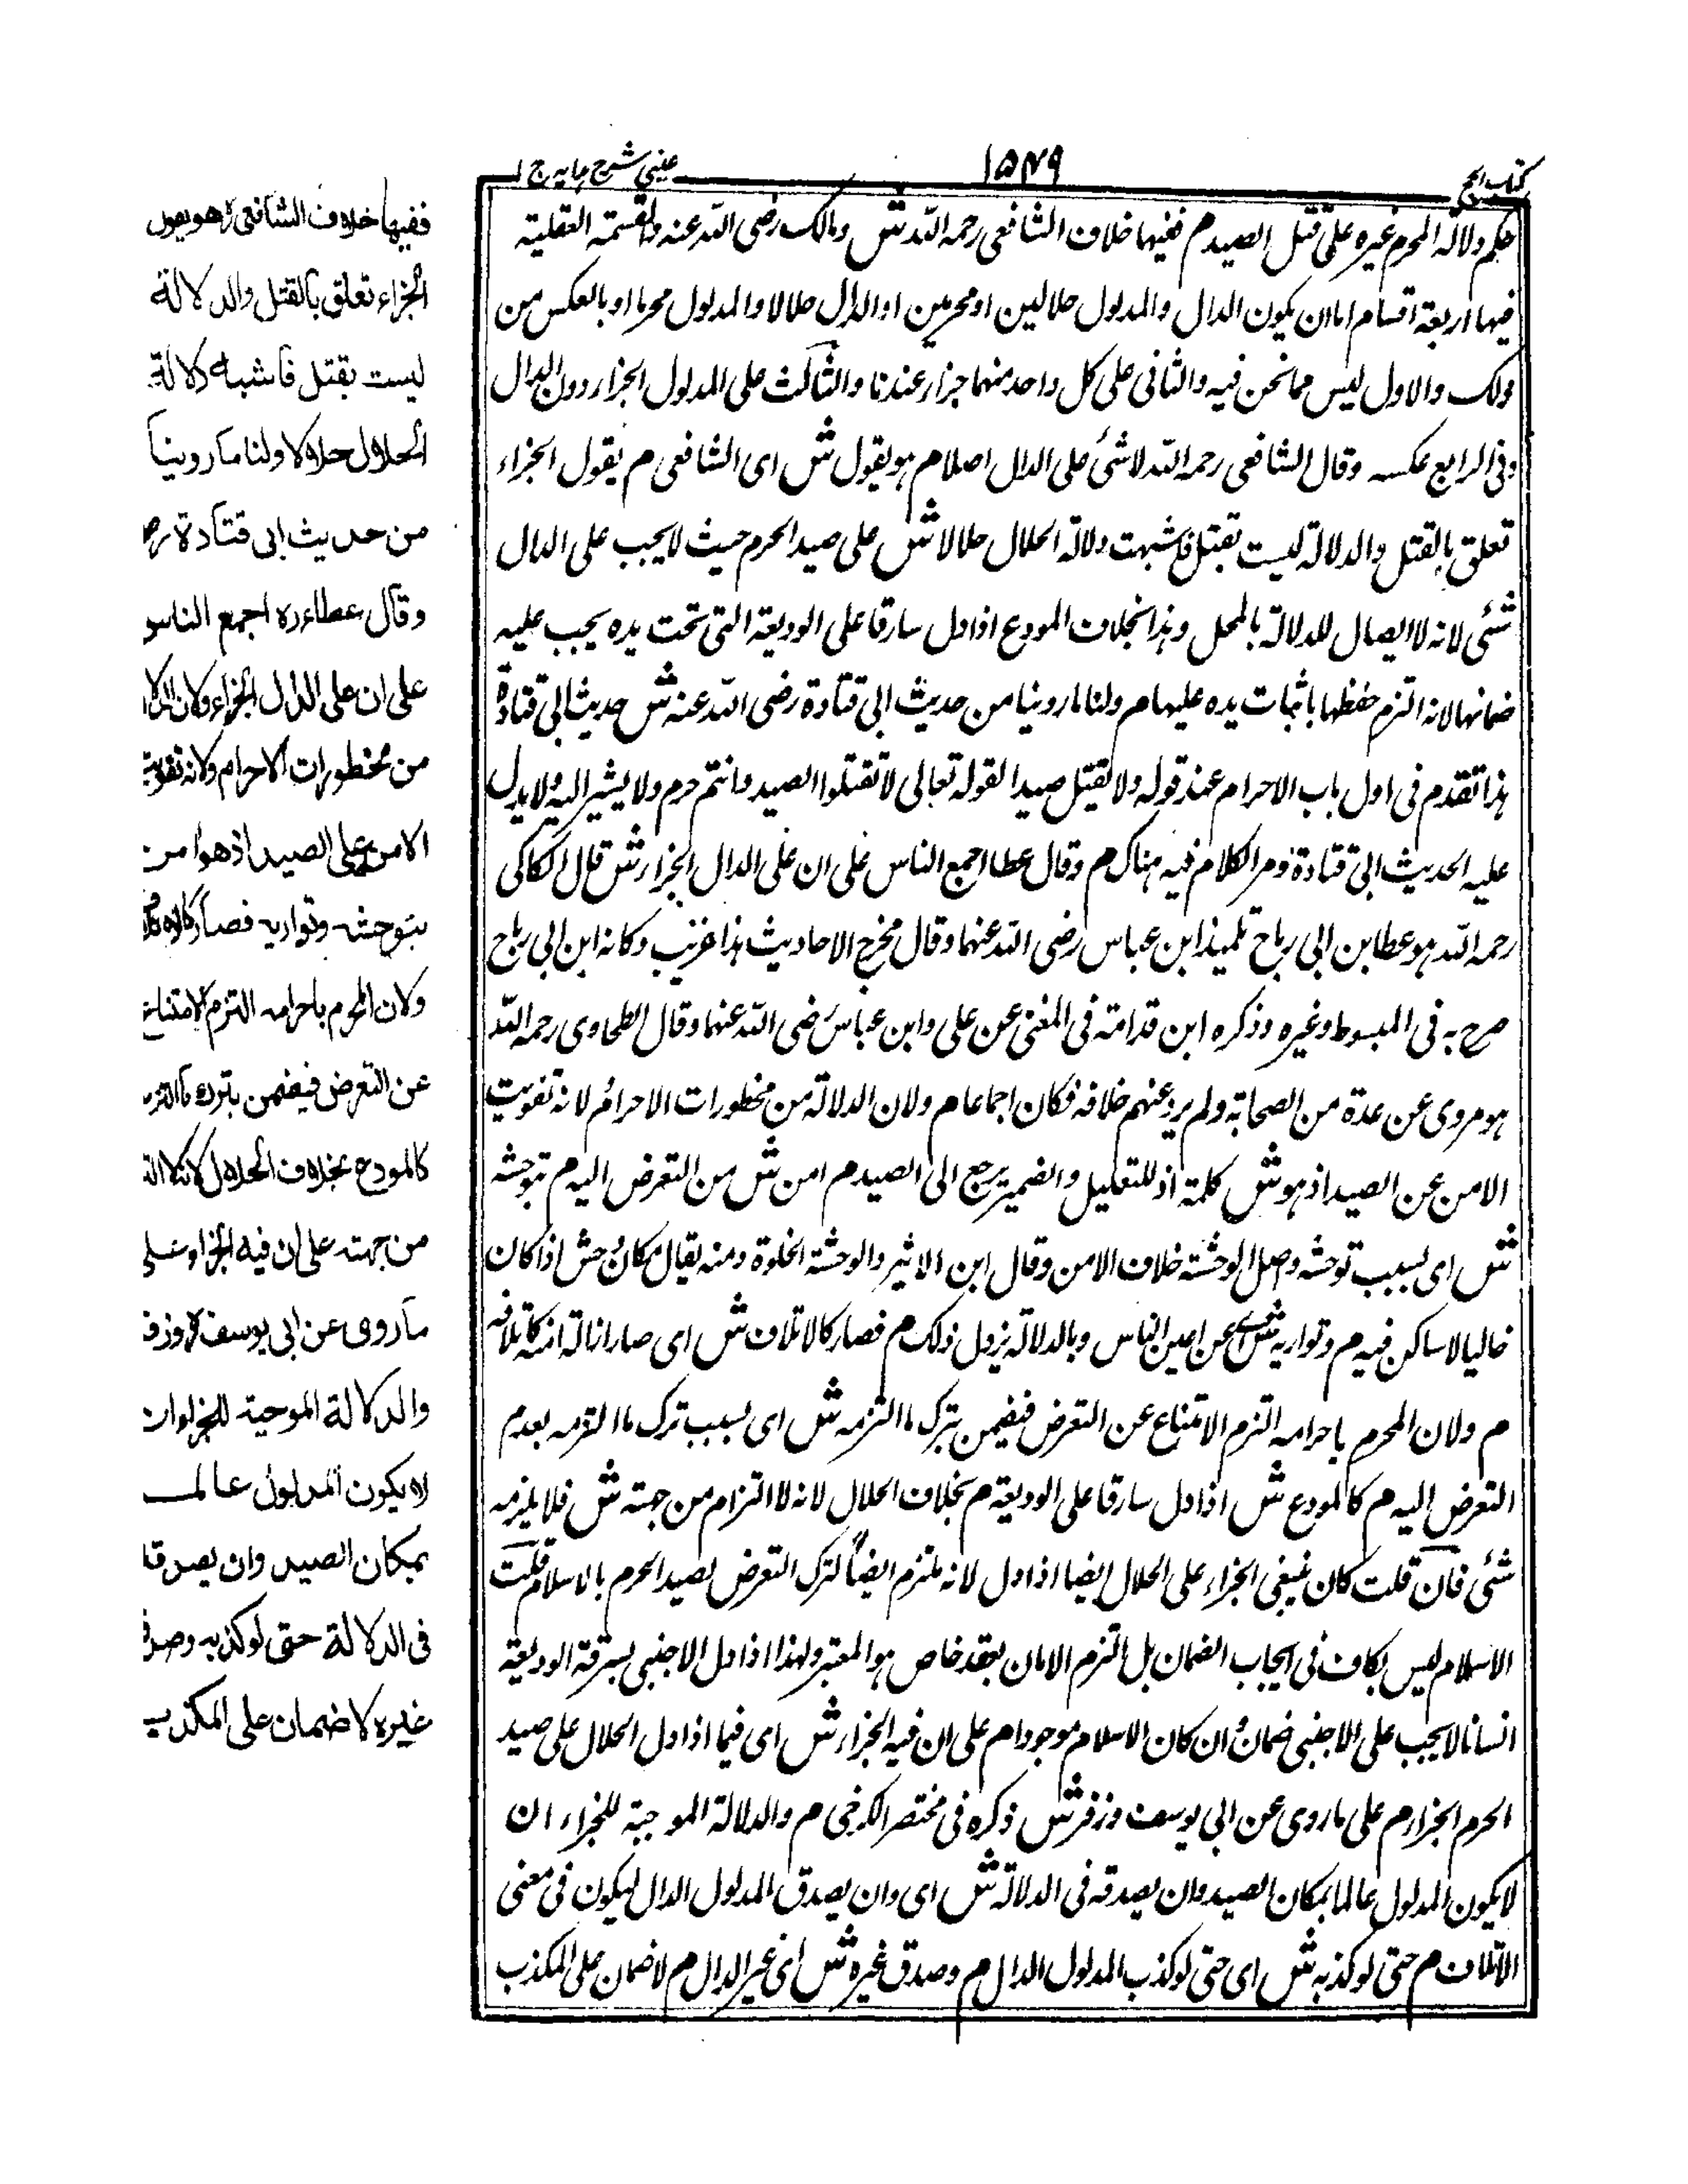 كتاب الحج
١٥٤٩
عيني شرح هدايه ج ١
حكم دلالة المحرم غيره على قتل الصيد م ففيها خلاف الشافعي رحمه الله ش ومالك رضى الله عنه والقسمة العقلية
فيها اربعة اقسام اما ان يكون الدال والمدلول حلالين او محرمين او الدال حلالا والمدلول محرما او بالعكس من
ذلك والاول ليس مما نحن فيه والثانى على كل واحد منهما جزاء عندنا والثالث على المدلول الجزاء دون الدال
وفى الرابع عكسه وقال الشافعي رحمه الله لا شئ على الدال اصلا م هو يقول ش اى الشافعي م يقول الجزاء
تعلق بالقتل والدلالة ليست بقتل فاشبهت دلالة الحلال حلالا ش على صيد الحرم حيث لا يجب على الدال
شئ لانه لا ايصال للدلالة بالمحل وهذا بخلاف المودع اذا دل سارقا على الوديعة التى تحت يده يجب عليه
ضمانها لانه التزم حفظها باثبات يده عليها م ولنا ما روينا من حديث ابى قتادة رضى الله عنه ش حديث ابى قتادة
هذا تقدم فى اول باب الاحرام عند قوله ولا يقتل صيدا لقوله تعالى لا تقتلوا الصيد وانتم حرم ولا يشير اليه ولا يدل
عليه الحديث ابى قتادة ومر الكلام فيه هناك م وقال عطا اجمع الناس على ان على الدال الجزاء ش قال الكاكى
رحمه الله هو عطا بن ابى رباح تلميذ ابن عباس رضى الله عنهما وقال مخرج الاحاديث هذا غريب وكانه ابن ابى رباح
صرح به فى المبسوط وغيره وذكره ابن قدامة فى المغنى عن على وابن عباس رضى الله عنهما وقال الطحاوى رحمه الله
هو مروى عن عدة من الصحابة ولم يرو عنهم خلافه فكان اجماعا م ولان الدلالة من محظورات الاحرام لانه تفويت
الامن عن الصيد اذ هو ش كلمة اذ للتعليل والضمير يرجع الى الصيد م امن ش من التعرض اليه م بتوحشه
ش اى بسبب توحشه واصل الوحشة خلاف الامن وقال ابن الاثير والوحشة الخلوة ومنه يقال مكان وحش اذا كان
خاليا لا ساكن فيه م وتواريه ش عن اعين الناس وبالدلالة يزول ذلك م فصار كالاتلاف ش اى صار ازالة امنه كاتلافه
م ولان المحرم باحرامه التزم الامتناع عن التعرض فيضمن بترك ما التزمه ش اى بسبب ترك ما التزمه بعدم
التعرض اليه م كالمودع ش اذا دل سارقا على الوديعة م بخلاف الحلال لانه لا التزام من جهته ش فلا يلزمه
شئ فان قلت كان ينبغى الجزاء على الحلال ايضا اذا دل لانه ملتزم ايضا لترك التعرض لصيد الحرم بالاسلام قلت
الاسلام ليس بكاف فى ايجاب الضمان بل التزم الامان بعقد خاص هو المعتبر ولهذا اذا دل الاجنبى بسرقة الوديعة
انسانا لا يجب على الاجنبى ضمان وان كان الاسلام موجودا م على ان فيه الجزاء ش اى فيما اذا دل الحلال على صيد
الحرم الجزاء م على ما روى عن ابى يوسف وزفر ش ذكره فى مختصر الكرخى م والدلالة الموجبة للجزاء ان
لا يكون المدلول عالما بمكان الصيد وان يصدقه فى الدلالة ش اى وان يصدق المدلول الدال ليكون فى معنى
الاتلاف م حتى لو كذبه ش اى حتى لو كذب المدلول الدال م وصدق غيره ش اى غير الدال م لا ضمان على المكذب
ففيها خلاف الشافعى هو يقول
الجزاء تعلق بالقتل والدلالة
ليست بقتل فاشبه دلالة
الحلال حلالا ولنا ما روينا
من حديث ابى قتادة رض
وقال عطاء ره اجمع الناس
على ان على الدال الجزاء ولان الدلا
من محظورات الاحرام ولانه تفويت
الامن على الصيد اذ هو امن
بتوحشه وتواريه فصار كالاتلاف
ولان المحرم باحرامه التزم الامتناع
عن التعرض فيضمن بترك ما التزمه
كالمودع بخلاف الحلال لانه لا الت
من جهته على ان فيه الجزاء على
ما روى عن ابى يوسف وزفر
والدلالة الموجبة للجزاء ان
لا يكون المدلول عالما
بمكان الصيد وان يصدقه
فى الدلالة حتى لو كذبه وصدق
غيره لا ضمان على المكذب